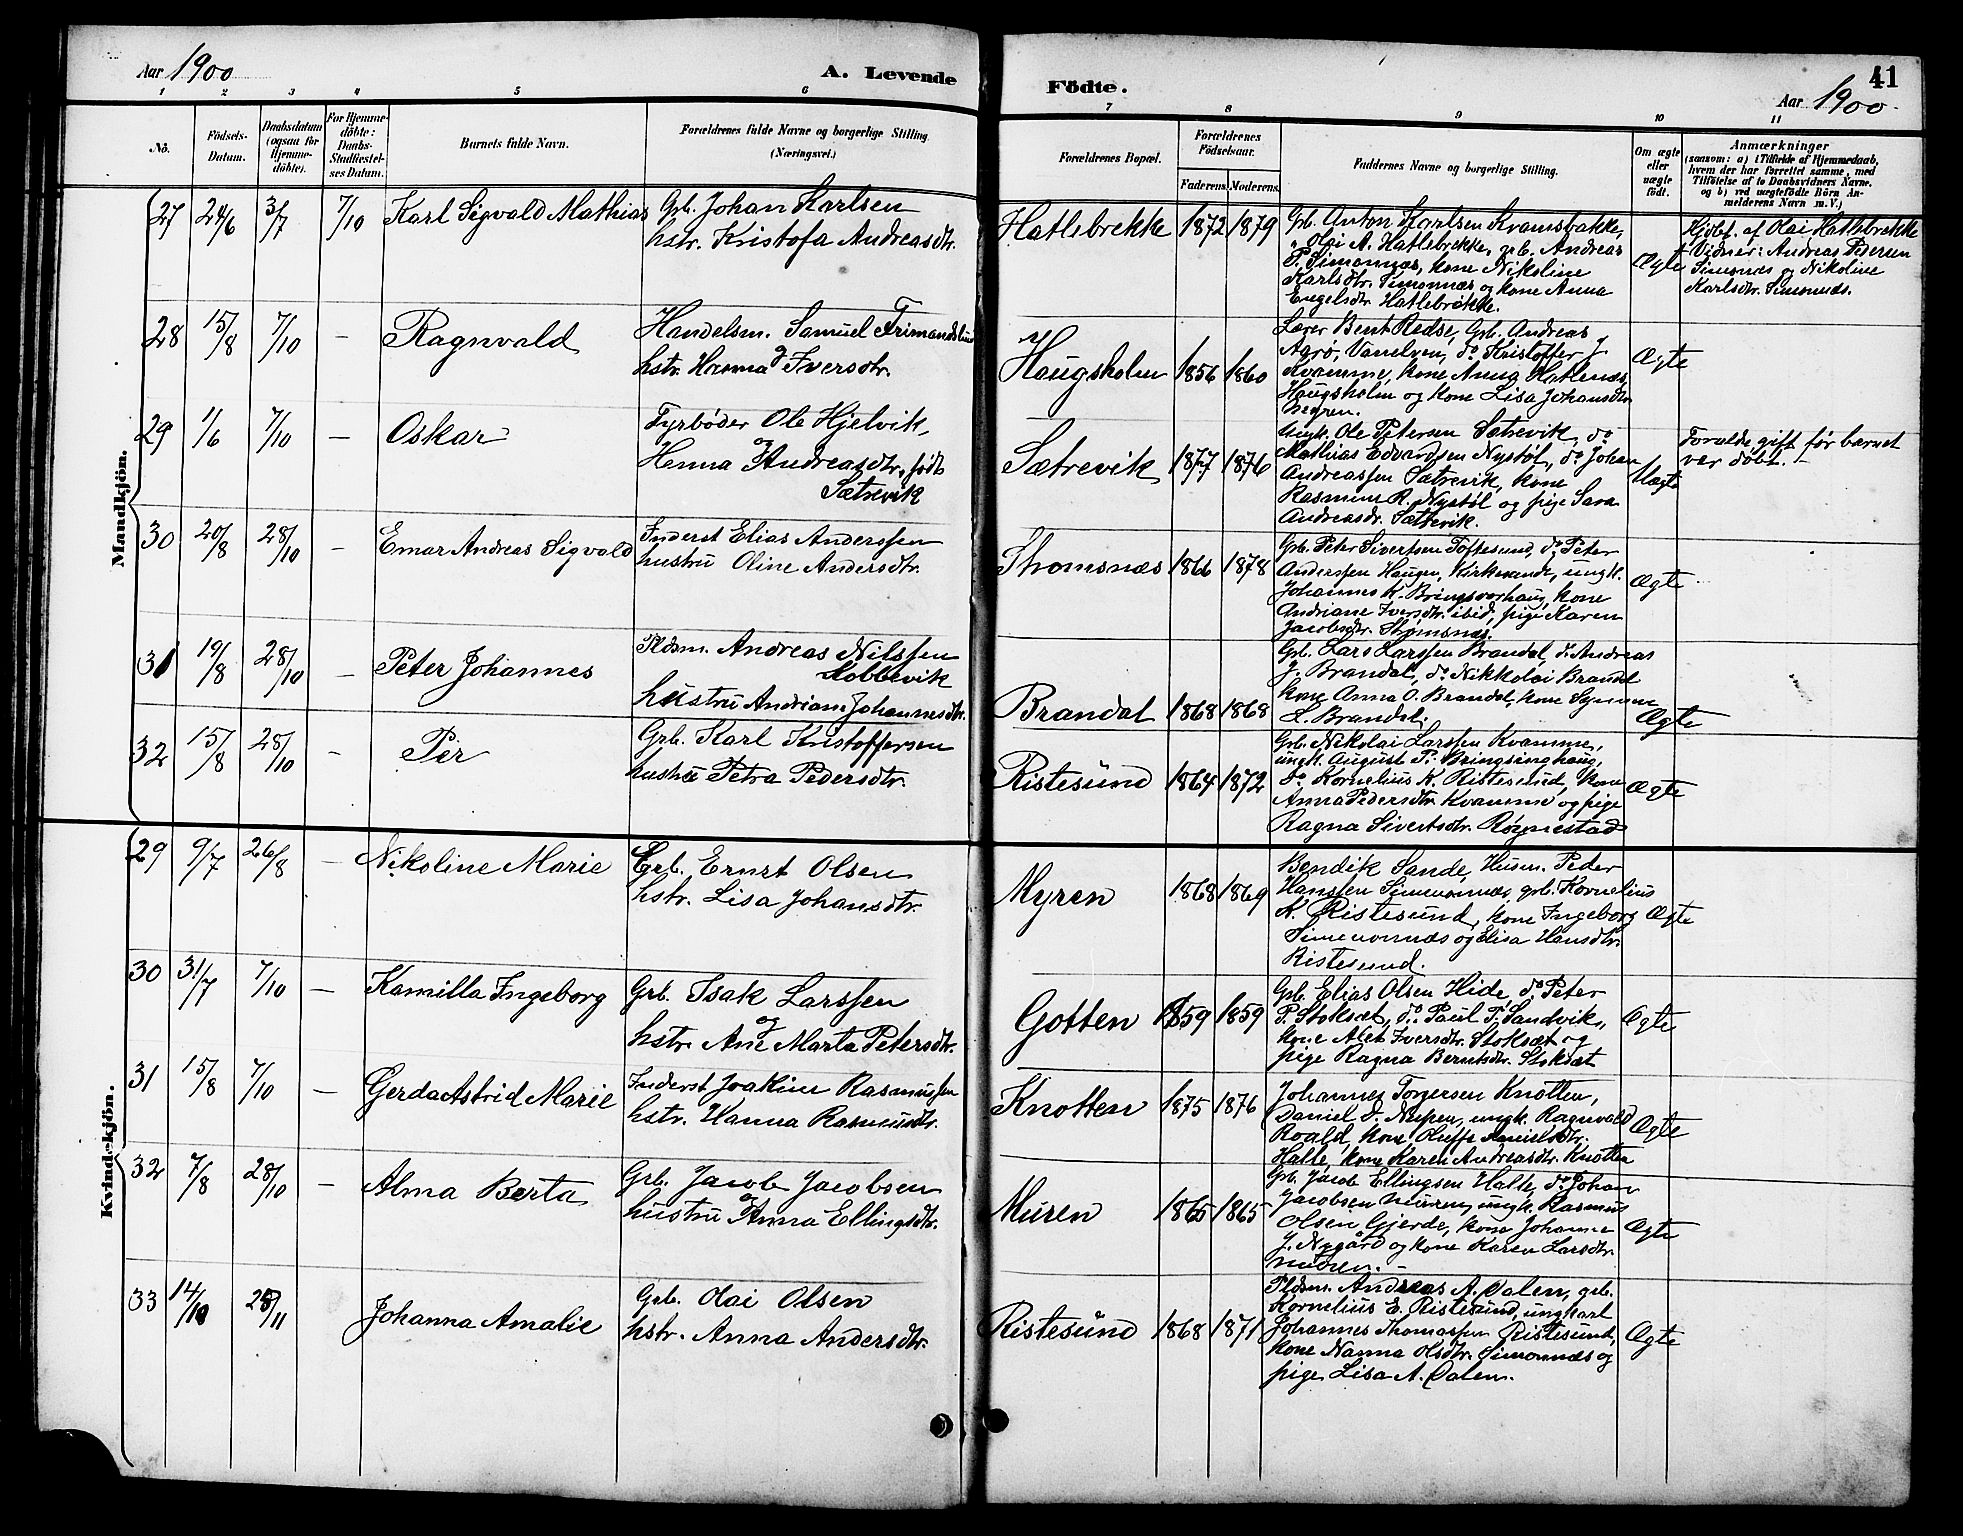 Aar 1900
A. Levende
Födte.
41
Aar 1900.
1 2 3 4 5 6 7 8 9 10 11
No.
Födsels-
Datum.
Daabsdatum
(ogsaa for
Hjemme-
döbte).
For Hjemme-
döbte:
Daabs-
Stadfæstel-
ses Datum.
Barnets fulde Navn.
Forældrenes fulde Navne og borgerlige Stilling.
(Næringsvei.)
Forældrenes Bopæl.
Forældrenes
Födselsaar.
Faderens. Moderens.
Faddernes Navne og borgerlige Stilling.
Om ægte
eller
uægte
födt.
Anmærkninger
(saasom: a) i Tilfælde af Hjemmedaab,
hvem der har forrettet samme, med
Tilföielse af to Daabsvidners Navne.
og b) ved uægtefödte Börn An-
melderens Navn m. V.)
Mandkjön.
27 24/6 3/7 7/10 Karl Sigvald Mathias
Grb. Johan Karlsen
hstr. Kristofa Andreasdtr.
Hatlebrekke 1872 1879
Grb. Anton Karlsen Kvamsbakke,
" Olai A. Hatlebrekke, grb. Andreas
P. Simonnæs, kone Nikoline
Karlsdtr. Simonnæs og kone Anna
Engelsdtr. Hatlebrekke.
Ægte
Hjdbt. af Olai Hatlebrekke
Vidner: Andreas Pedersen
Simonnæs og Nikoline
Karlsdtr. Simonnæs.
28 15/8 7/10 - Ragnvald
Handelsm. Samuel Frimandslund
og
hstr. Hanna Iversdtr.
Haugsholm 1856 1860
Lærer Bent Redse, Grb. Andreas
Aarø, Vanelven, do Kristoffer J.
Kvamme, kone Anna Hatlenæs,
Haugsholm og kone Lisa Johansdtr.
Myren.
Ægte
29 1/6 7/10 - Oskar
Fyrbøder Ole Hjelvik,
og
Henna Andreasdtr, født
Sætrevik
Sætrevik 1877 1876
Ungk. Ole Petersen Sætrevik, do
Mathias Edvardsen Nystøl, do Johan
Andreassen Sætrevik, kone
Rasmine R. Nystøl og pige Sara
Andreasdr. Sætrevik.
Uægte
Foræld. gift før barnet
var døbt. -
30 20/8 28/10 - Emar Andreas Sigvald
Inderst Elias Anderssen
hustru Oline Andersdtr.
Thomsnæs 1866 1878
Grb. Peter Sivertsen Toftesund, do Peter
Anderssen Haugen, Kirkevande, ungk.
Johannes K. Bringsvorhaug, kone
Andriane Iversdtr. ibid, pige Karen
Jacobsdtr.
Ægte
31 19/8 28/10 - Peter Johannes
Pldsm. Andreas Nilssen
Kobbevik
hustru Andriane Johannesdtr.
Brandal 1868 1868
Grb. Lars Larssen Brandal, do Andreas
J. Brandal, do Nikkolai Brandal
kone Anna O. Brandal, kone
L. Brandal.
Ægte
32 15/8 28/10 - Per
Grb. Karl Kristoffersen
hustru Petra Pedersdtr.
Ristesund 1864 1872
Grb. Nikolai Larssen Kvamme,
ungk. August P. Bringsinghaug,
do Kornelius K. Ristesund, kone
Anna Pedersdtr. Kvamme og pige
Ragna Sivertsdtr. Røgnestad
Ægte
Kvindekjön.
29 9/7 26/8 - Nikoline Marie
Grb. Ernst Olsen
hstr. Lisa Johansdtr.
Myren 1868 1869
Bendik Sande, Husm. Peder
Hanssen Simeonnæs, grb. Kornelius
K. Ristesund, kone Ingeborg
Simeonnæs og Elisa Hansdtr.
Ristesund.
Ægte
30 31/7 7/10 - Kamilla Ingeborg
Grb. Isak Larssen
og
hstr. Ane Marta Petersdtr.
Gotten 1859 1859
Grb. Elias Olsen Hide, do Peter
P. Stoksæt, do. Paul P. Sandvik,
kone Alet Iversdtr. Stoksæt og
pige Ragna Berntsdtr. Stoksæt
Ægte
31 15/8 7/10 - Gerda Astrid Marie
Inderst Joakim Rasmussen
hstr. Hanna Rasmusdtr.
Knotten 1875 1876
Johannes Torgersen Knotten,
Daniel J. Nupen, ungk. Ragnvald
Roald, kone Oluffa
Halle, kone Karen Andreasdtr. Knotten
Ægte
32 7/8 28/10 - Alma Berta
Grb. Jacob Jacobsen
og
hustru Anna Ellingsdtr.
Muren 1865 1865
Grb. Jacob Ellingsen Halle, do Johan
Jacobsen Muren, ungk. Rasmus
Olsen Gjerde, kone Johanne
J. Nygård og kone Karen Larsdtr.
Muren. -
Ægte
33 14/10 25/11 Johanna Amalie
Grb. Olai Olsen
hstr. Anna Andersdtr.
Ristesund 1868 1871
Pldsm. Andreas A. Dalen, grb.
Kornelius E. Ristesund, ungkarl
Johannes Thomassen Ristesund,
kone Nanna Olsdtr. Simonnæs og
pige Lisa A. Dalen.
Ægte